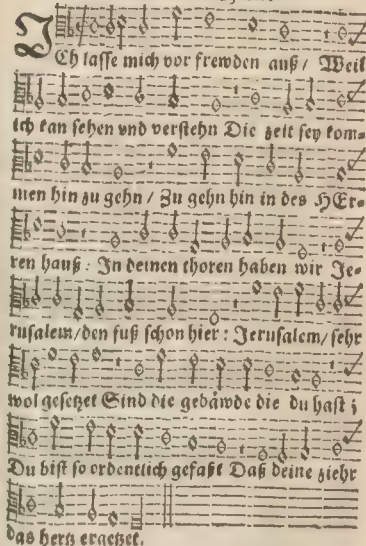 ICh lasse mich vor frewden auß / Weil
ich kan sehen vnd verstehn Die zeit sey kom-
men hin zu gehn / Zu gehn hin in des HEr-
ren hauß: In deinen thoren haben wir Je-
rusalem / den fuß schon hier: Jerusalem / sehr
wol gesetzet Sind die gebäwde die du hast;
Du bist so ordentlich gefaßt Daß deine ziehr
das hertz ergetzet.